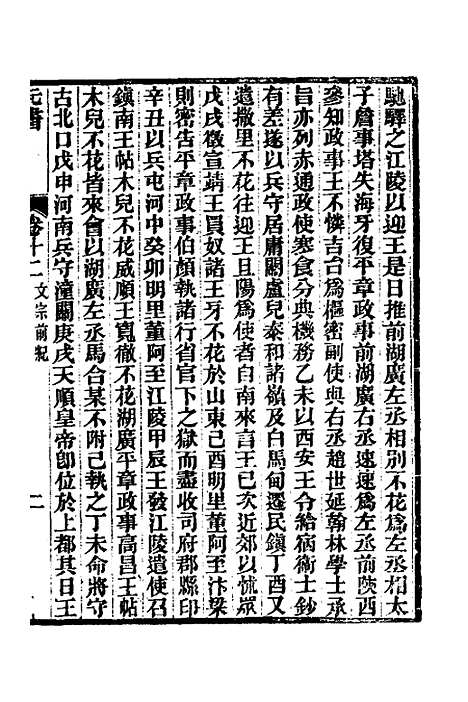 馳驛之江陵以迎王是日推前湖廣左丞相別不花爲左丞相太
子詹事塔失海牙復平章政事前湖廣右丞速速爲左丞前陝西
參知政事王不憐吉台爲樞密副使與右丞趙世延翰林學士承
旨亦列赤通政使寒食分典機務乙未以西安王令給宿衞士鈔
有差遂以兵守居庸關盧兒泰和諸嶺及白馬甸遷民鎭丁酉又
遣撒里不花往迎王且陽爲使者自南來言王已次近郊以慰眾
戊戌徵宣靖王買奴諸王牙不花於山東己酉明里董阿至汴梁
則密告平章政事伯顏執諸行省官下之獄而盡收司府郡縣印
辛丑以兵屯河中癸卯明里董阿至江陵甲辰王發江陵遣使召
鎭南王帖木兒不花威順王寬徹不花湖廣平章政事高昌王帖
木兒不花皆來會以湖廣左丞馬合某不附己執之丁未命將守
古北口戊申河南兵守潼關庚戌天順皇帝卽位於上都其日王
元書
卷十二 文宗前紀
二